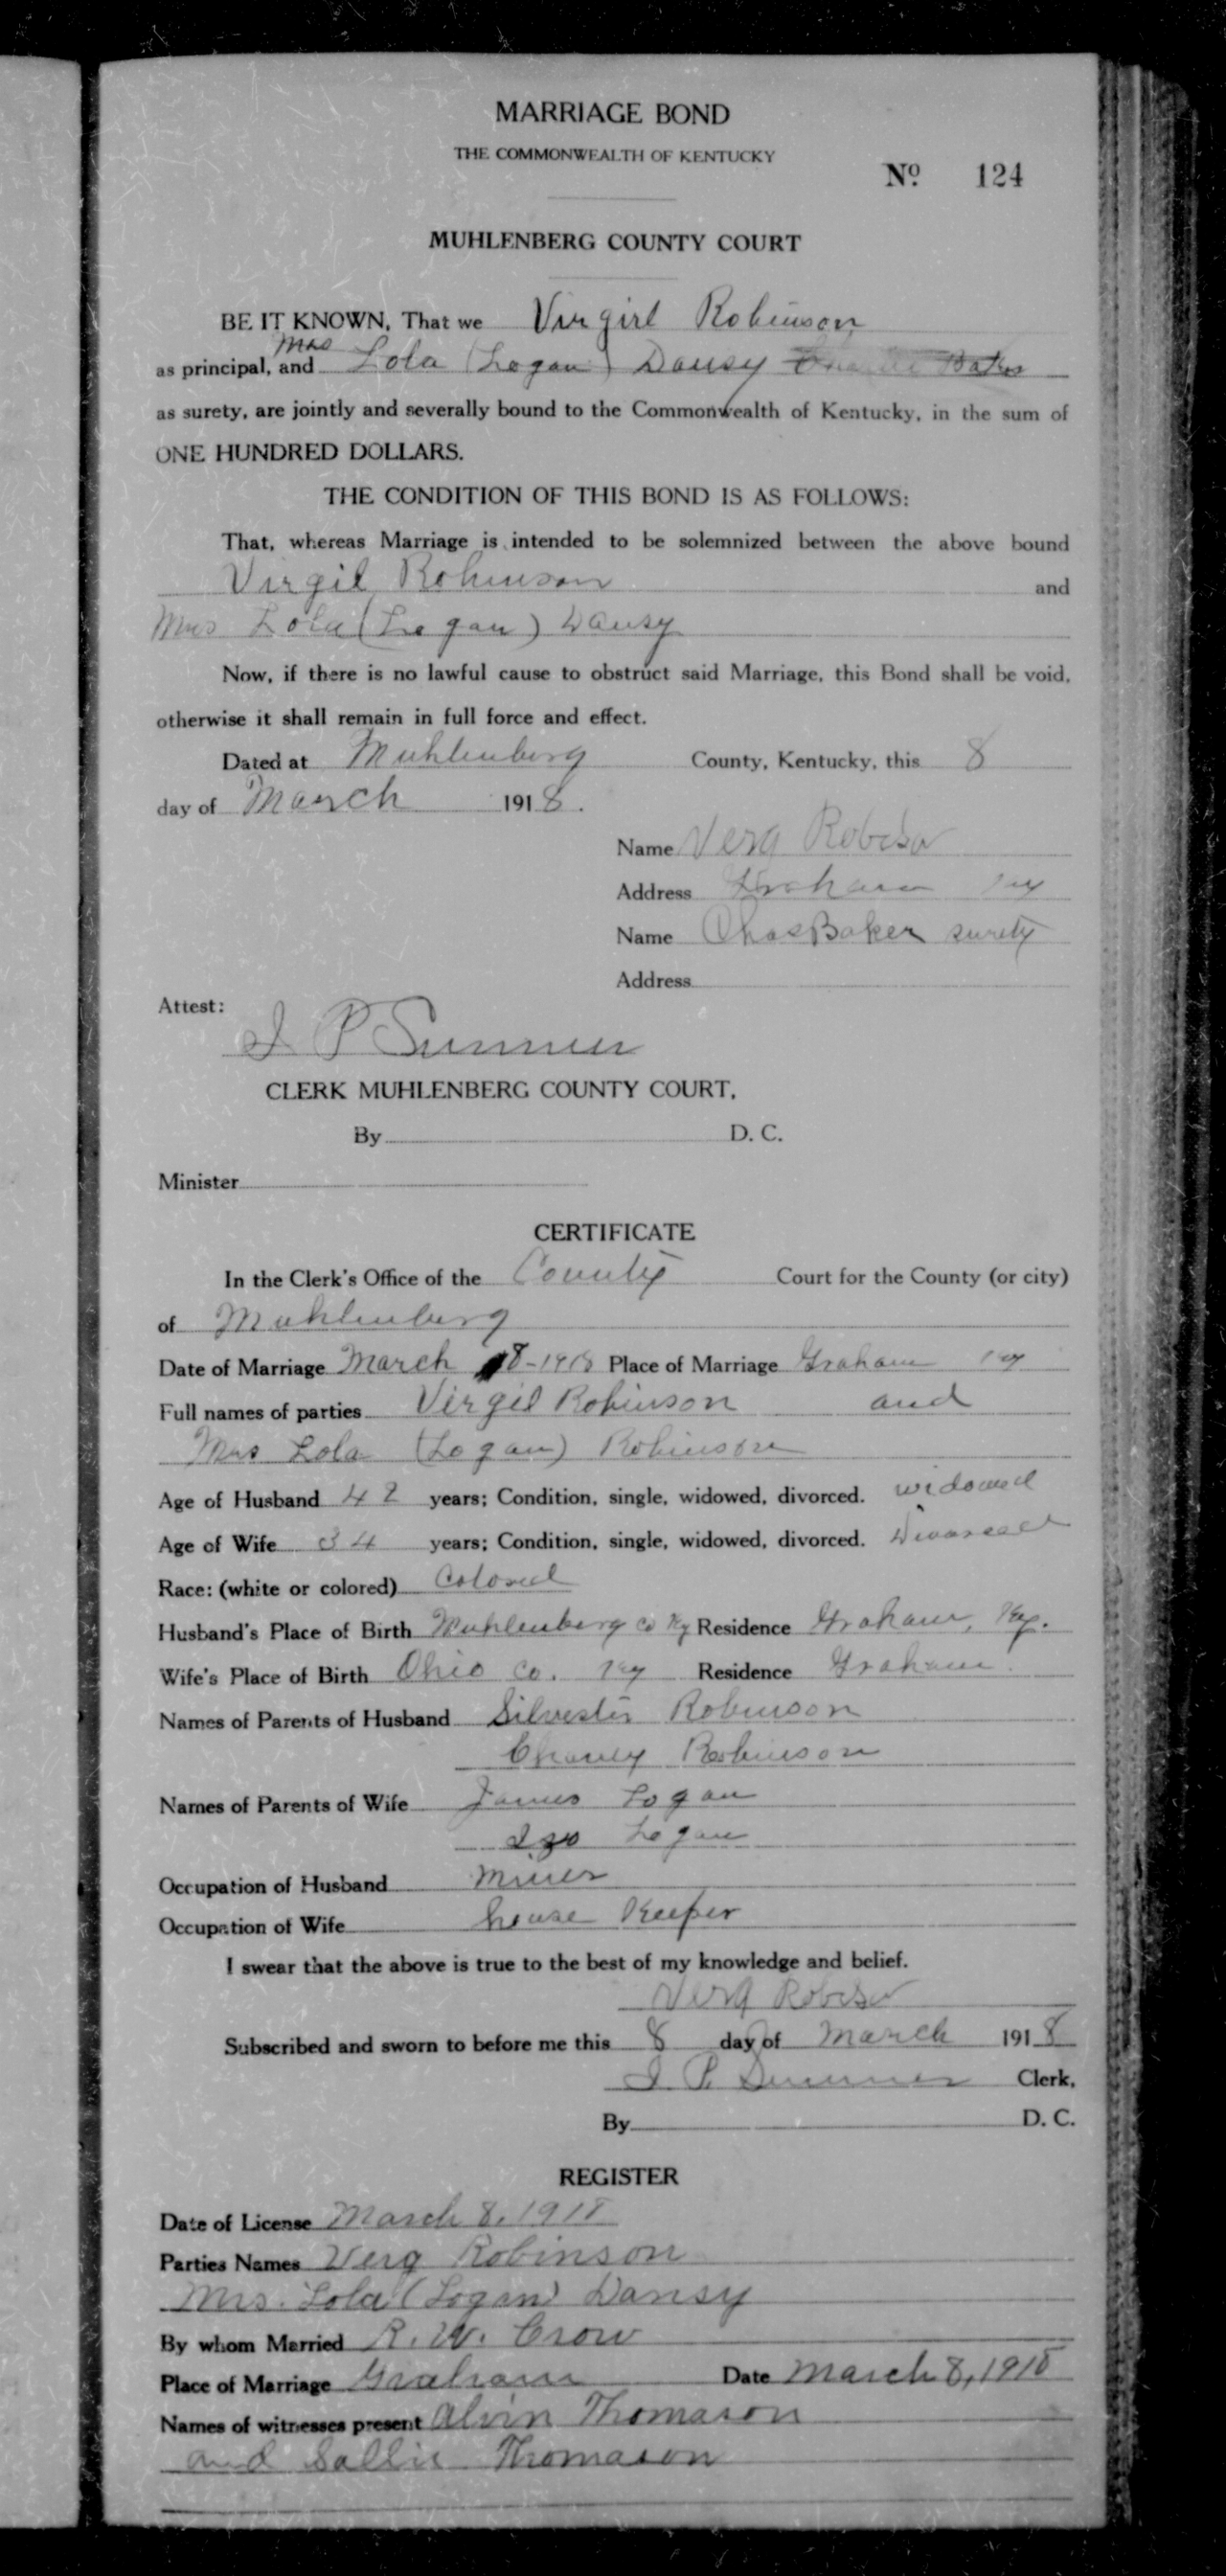 MARRIAGE BOND
THE COMMONWEALTH OF KENTUCKY
Nº 124
MUHLENBERG COUNTY COURT
BE IT KNOWN, That we Virgirl Robinson
as principal, and Mrs Lola (Logan) Dansy
as surety, are jointly and severally bound to the Commonwealth of Kentucky, in the sum of
ONE HUNDRED DOLLARS.
THE CONDITION OF THIS BOND IS AS FOLLOWS:
That, whereas Marriage is intended to be solemnized between the above bound
Virgil Robinson and
Mrs Lola (Logan) Dansy
Now, if there is no lawful cause to obstruct said Marriage, this Bond shall be void,
otherwise it shall remain in full force and effect.
Dated at Muhlenberg County, Kentucky, this 8
day of March 1918.
Name Verg Robison
Address Graham Ky
Name Chas Baker surety
Address
Attest:
J P Summer
CLERK MUHLENBERG COUNTY COURT,
By D. C.
Minister
CERTIFICATE
In the Clerk's Office of the County Court for the County (or city)
of Muhlenberg
Date of Marriage March 8-1918 Place of Marriage Graham Ky
Full names of parties Virgil Robinson and
Mrs Lola (Logan) Robinson
Age of Husband 42 years; Condition, single, widowed, divorced. widowed
Age of Wife 34 years; Condition, single, widowed, divorced. Divorced
Race: (white or colored) Colored
Husband's Place of Birth Muhlenberg Co Ky Residence Graham, Ky.
Wife's Place of Birth Ohio Co. Ky Residence Graham.
Names of Parents of Husband Silvester Robinson
Robinson
Names of Parents of Wife James Logan
Logan
Occupation of Husband Miner
Occupation of Wife house Keeper
I swear that the above is true to the best of my knowledge and belief.
Verg Robison
Subscribed and sworn to before me this 8 day of March 1918
J P. Summer Clerk,
By D. C.
REGISTER
Date of License March 8, 1918
Parties Names Verg Robinson
Mrs. Lola (Logan) Dansy
By whom Married R. W. Crow
Place of Marriage Graham Date March 8, 1918
Names of witnesses present Alvin Thomason
and Sallie Thomason